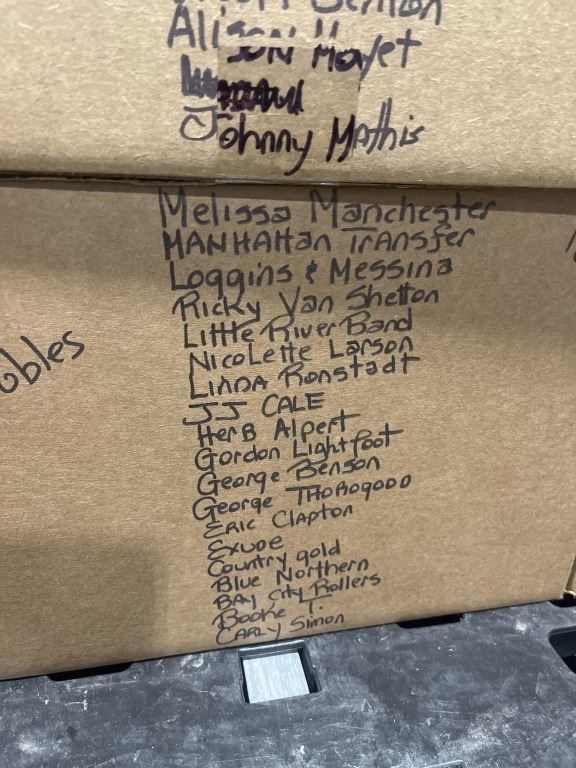 Alison Moyet
Johnny Mathis
Melissa Manchester
MANHAttan TrANSfer
Loggins & Messina
Ricky Van Shelton
Little River Band
Nicolette Larson
LINDA Ronstadt
JJ CALE
HerB Alpert
Gordon Lightfoot
George Benson
George THOROGOOD
ERIC Clapton
Exude
Country gold
Blue Northern
BAy City Rollers
Booke T.
CARLY Simon
obles